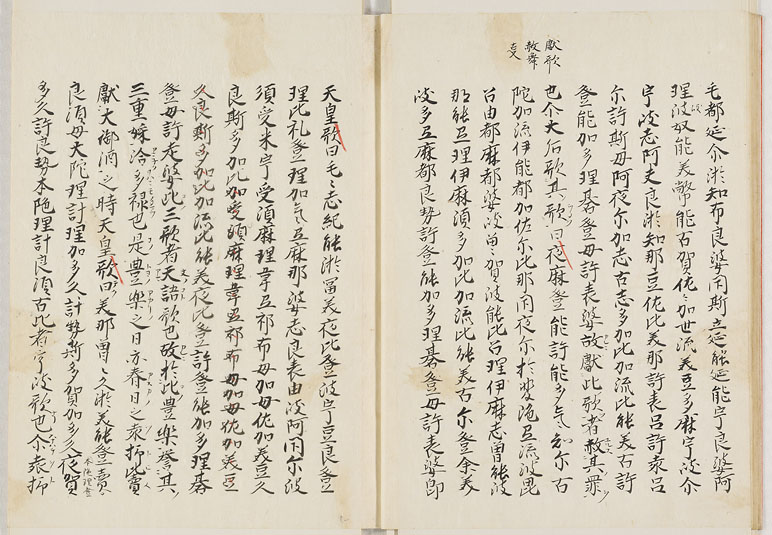 獻歌
毛都延尒淤知布良婆閇斯豆延能延能宇良婆阿
理波奴能美幣能古賀佐々加世流美豆多麻宇波尒
宇波志阿夫良淤知那豆佐比美那許袁呂許袁呂
尒許斯母阿夜尒加志古志多加比加流比能美古許
登能加多理碁登母許袁婆故獻此歌者赦其罪
也尒大后歌其歌曰夜麻登能許能多気知尒古
陀加流伊能都加佐尒比那閇夜尒於斐陀弖流波毘
呂由都麻都婆岐曾賀波能比呂理伊麻志曾能波
那能弖理伊麻須多加比加流比能美古尒登余美
波多弖麻都良勢許登能加多理碁登母許袁婆即
天皇歌曰毛々志紀能淤冨美夜比登波宇豆良登
理比礼登理加気弖麻那婆志良袁由岐阿閇尒波
須受米宇受須麻理韋弖祁布母加母佐加美豆久
良斯多加比加受須麻理韋弖祁布母加母佐加美豆
久良斯多加比加流比能美夜比登許登能加多理碁
登母許袁婆此三歌者天語歌也故於此豊樂誉其
三重婇給多禄也是豊樂之日亦春日之袁抒比賣
獻大御酒之時天皇歌曰美那曽々久淤美能登賣
良須母大陀理計理加多久計勢斯多賀加多久夜賀
多久許良勢本陀理計良須古此者宇岐歌也尒袁抒